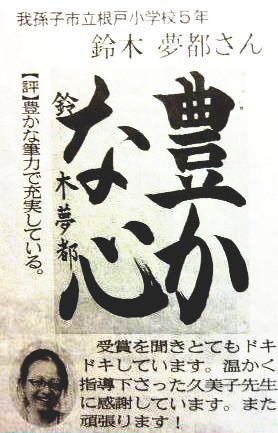 我孫子市立根戸小学校5年
鈴木 夢都さん
豊か
な心
鈴木夢都
【評】豊かな筆力で充実している。
受賞を聞きとてもドキ
ドキしています。温かく
指導下さった久美子先生
に感謝しています。また
頑張ります!